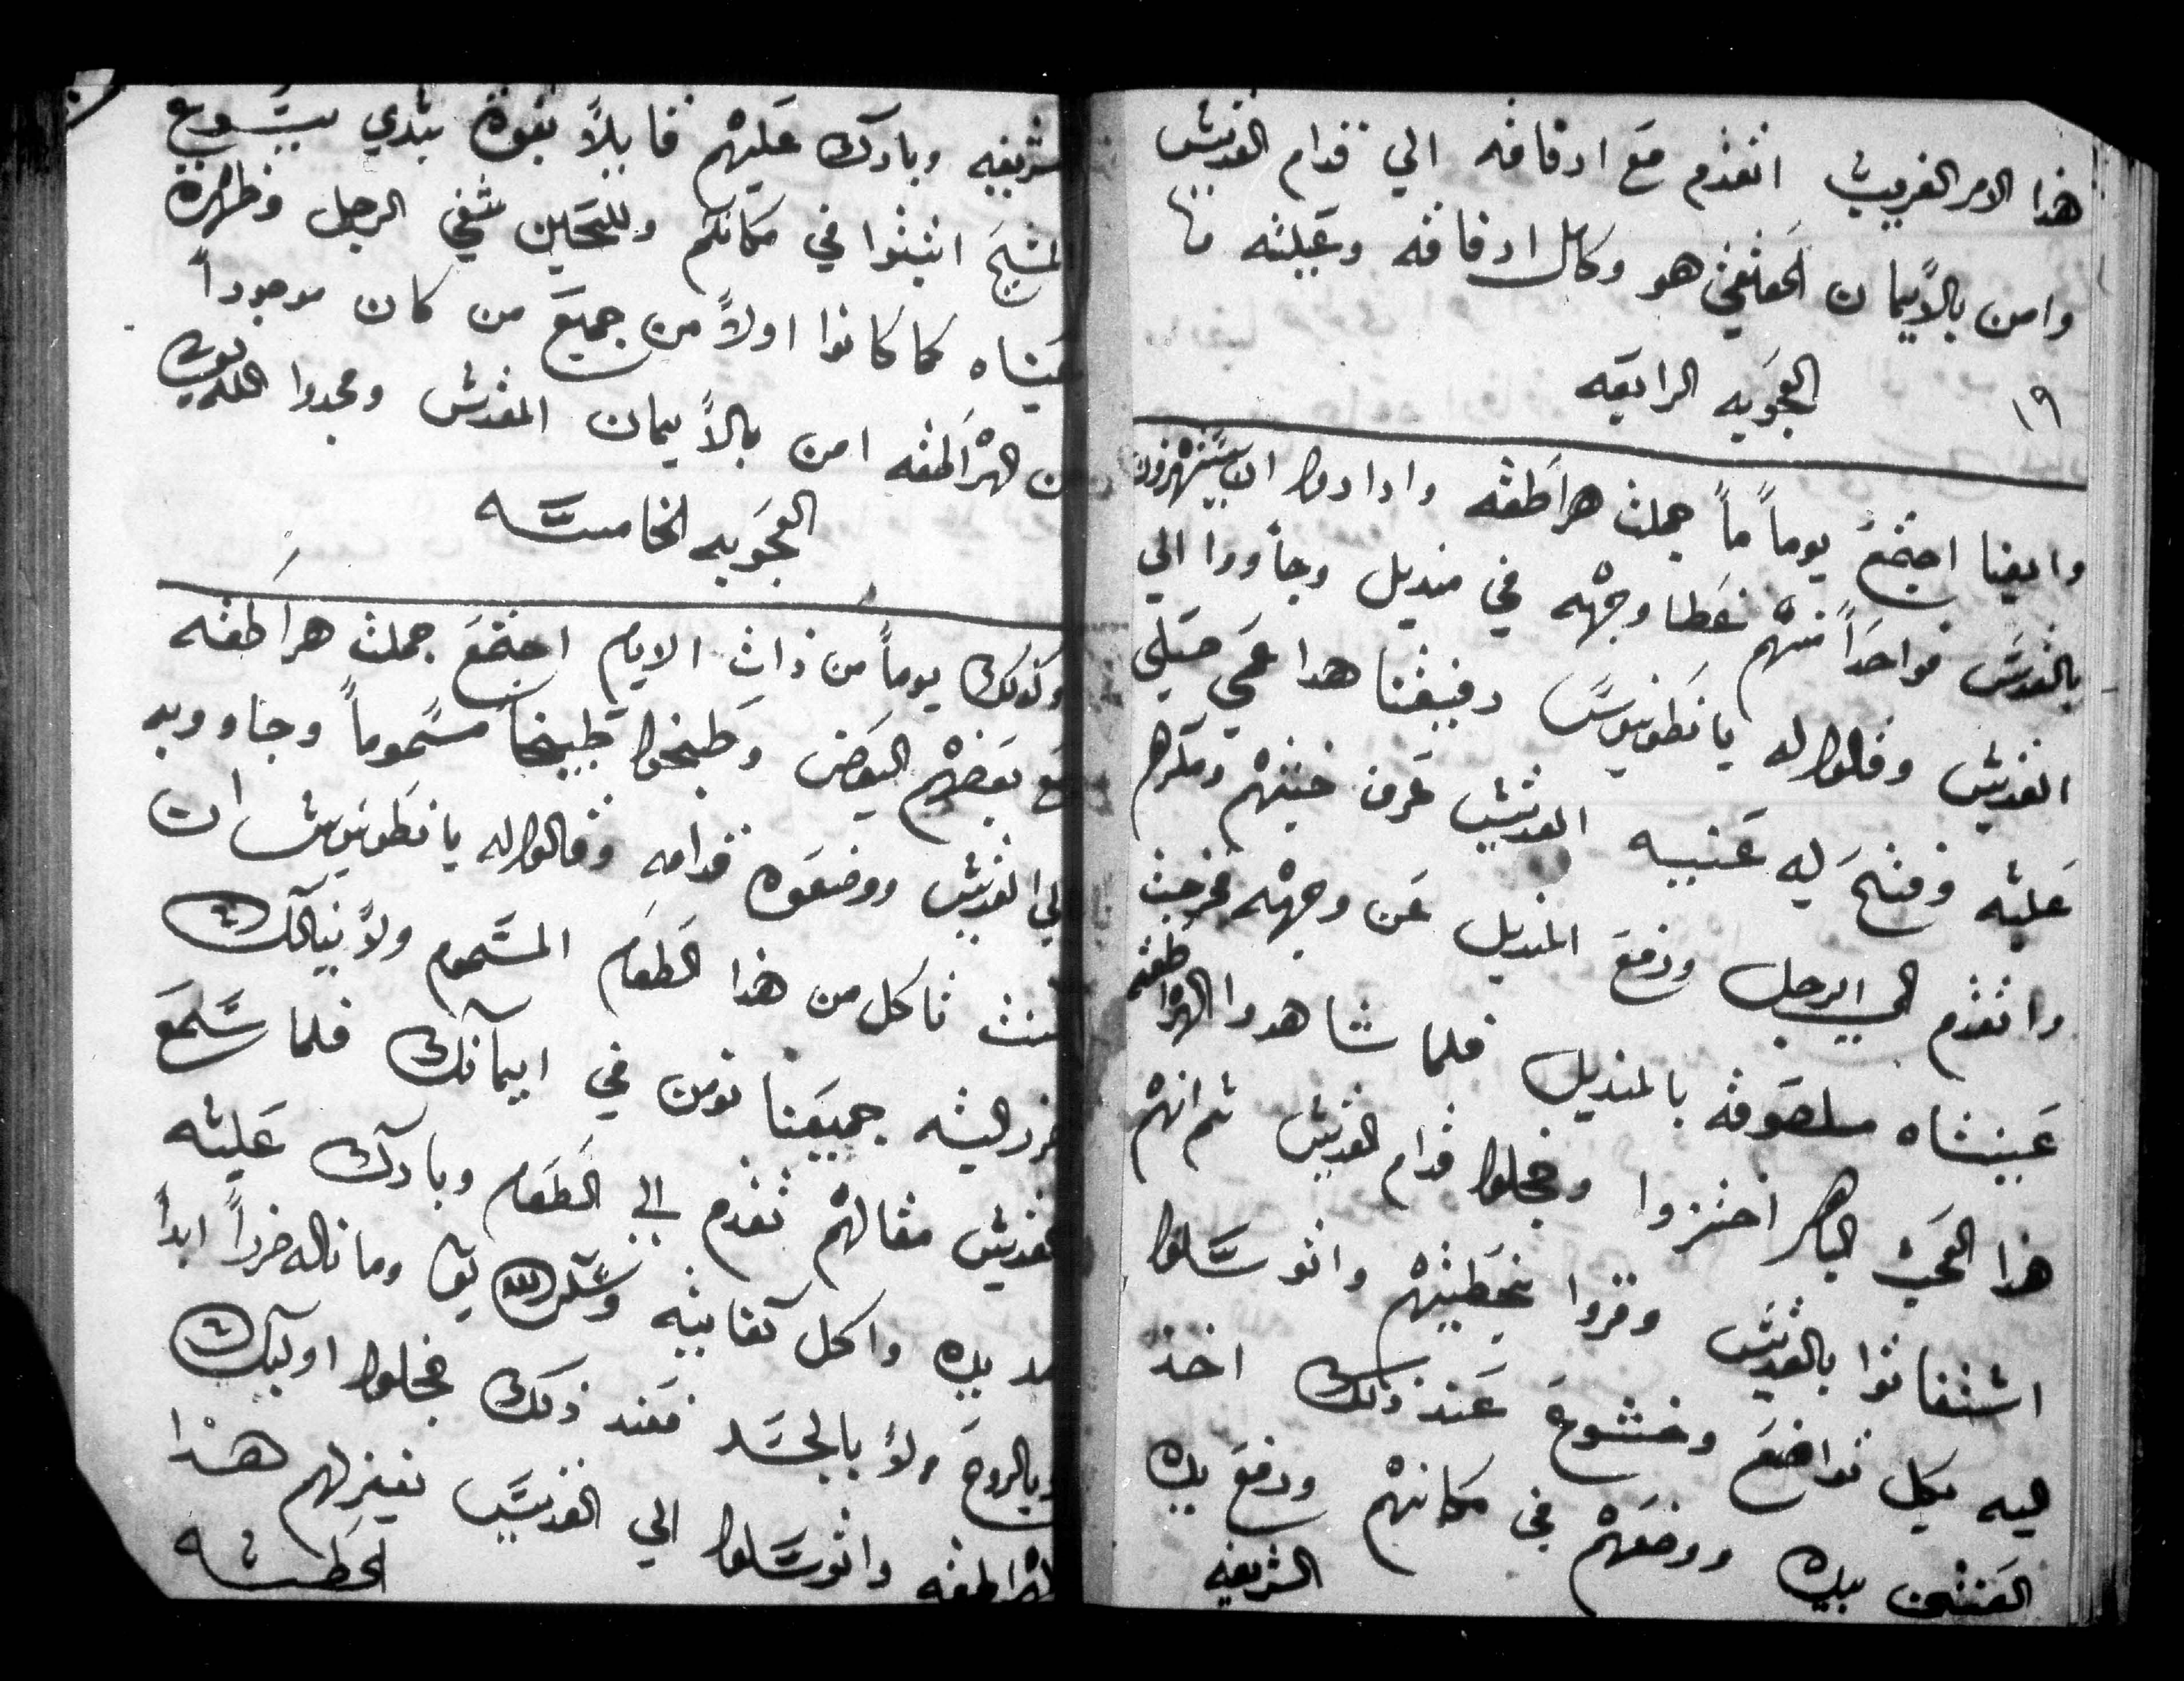 هذا الامر الغريب اتقدم مع ارفاقه الي قدام القديس
وامن بالأيمان الحقيقي هو وكامل ارفاقه وعيلته
١٩ العجوبه الرابعه
وايضا اجتمع يوماً ماً جملت هراطقه وارادوا ان يستهزون
بالقديس فواحداً منهم غطا وجهه في منديل وجأووا الي
القديس وقالوا له يا نطونيوس رفيقنا هدا عمي صلي
عليه وفتح له عنيه القديس عرف خبثهم ومكرهم
واتقدم الي الرجل ورفع المنديل عن وجهه فخرجت
عينتاه ملصوقه بالمنديل فلما شاهدوا الهراطقه
هذا العجب الباهر احتزوا وخجلوا قدام القديس ثم انهم
استغاتوا بالقديس وقروا بخطيتهم واتوسلوا
اليه بكل تواضع وخشوع عند ذلك اخذ
العنتين بيده ووضعهم في مكانهم ورفع يده
الشريفه
الشريفه وبارك عليهم قايلاً بقوة سيدي يسوع
المسيح اتبتوا في مكانكم وللحين شفي الرجل وظهرة
عيناه كما كانوا اولاً من جميع من كان موجوداً
من الهراطقه امن بالأيمان المقدس ومجدوا الله
العجوبه الخامسه
وكذلك يوماً من ذات الايام اجتمع جملت هراطقه
مع بعضهم البعض وطبخوا طبيخاً مسموماً وجاووبه
الي القديس ووضعوه قدامه وقالوا له يا نطونيوس ان
كنت تاكل من هذا الطعام المسموم ولأ ينالك
ضرر البته جميعنا نومن في ايمآنك فلما سمع
القديس مقالهم تقدم الي الطعام وبارك عليه
مد يده واكل كفايته وشكر الله تع وما ناله ضرراً ابداً
لا بالروح ولأ بالجسد فعند ذلك خجلوا اوليك
الهراطقه واتوسلوا الي القديس يغفر لهم هذا
الخطيه